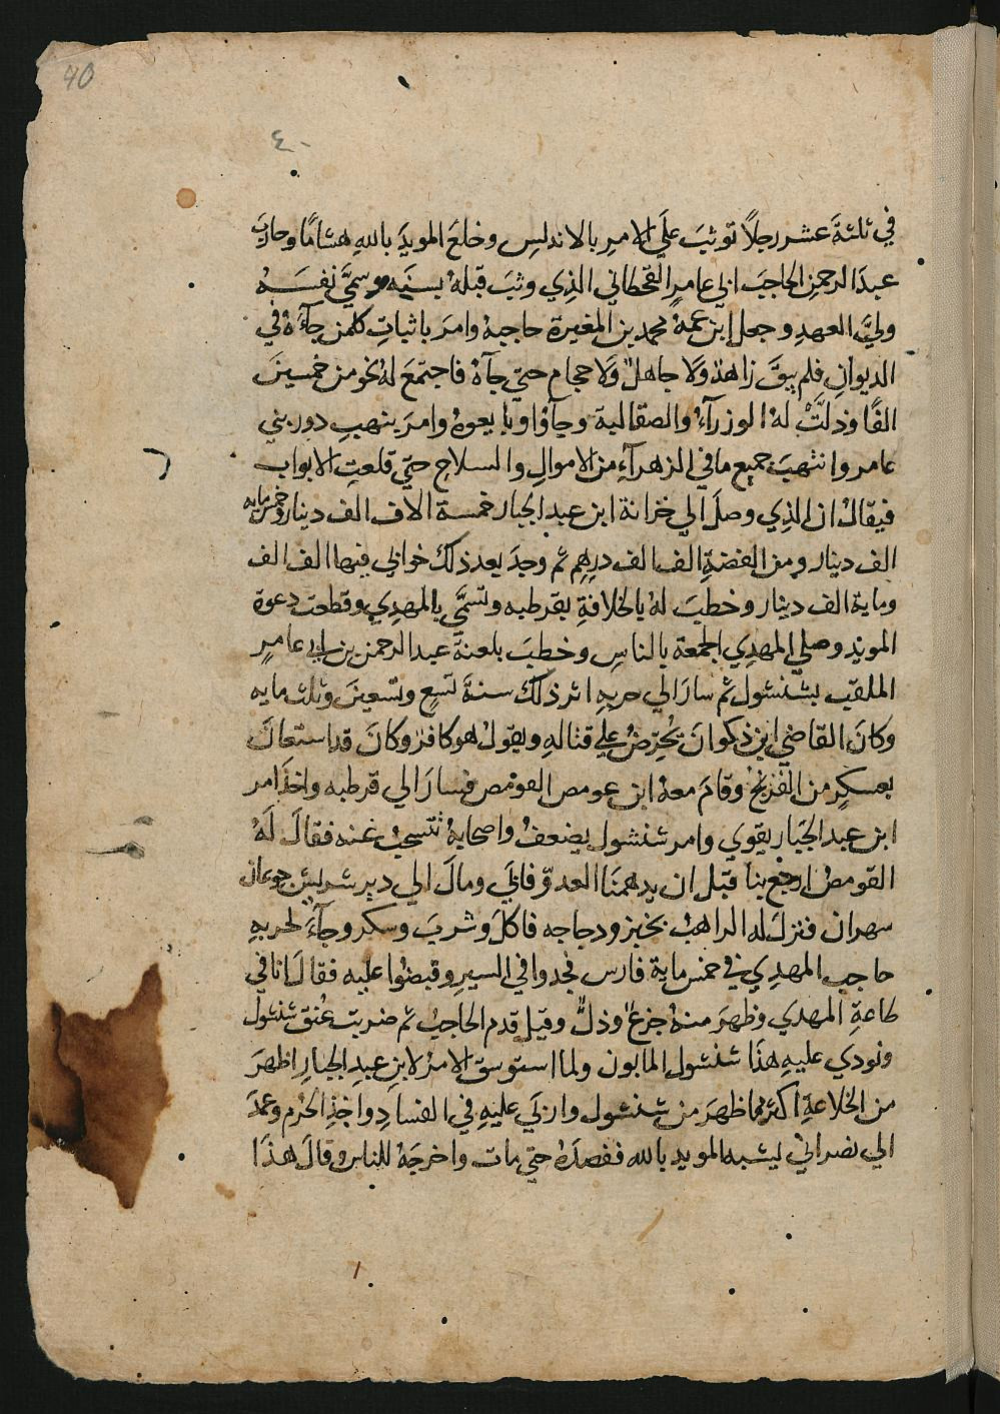 40
٤٠
في ثلثةَ عشر رجلاً توثبَ علَي الامرِ بالاندلسِ وخلعَ المويدَ باللهِ هشامًا وحاربَ
عبدَ الرحمنِ الحاجبَ ابي عامرٍ القحطاني الذِي وثبَ قبلهُ بسنَيه وسمَّي نفسَهُ
وليَّ العهدِ وجعل ابن عمهُ محمد بن المغيرة حاجبهُ وامرَ باثباتِ كلمن جآءهُ في
الديوانِ فلم يبقَ زاهدٌ ولا جاهلٌ ولا حجام حتي جآهُ فاجتمَعَ لهُ نحو من خمسينَ
الفًا وذلَّتْ لهُ الوزرآءُ والصقالبة وجآؤا وبايعوهُ وامرَ بنهبِ دور بني
عامر وانتهبَ جميع ما في الزهرآءِ من الاموالِ والسلاحِ حتي قلعتِ الابواب
فيقالُ ان الذِي وصلَ الي خزانة ابن عبد الجبار خمسة الاف الف دينار وخمس مايه
الف دينار ومن الفضةِ الف الف درهمٍ ثم وجدَ بعد ذلك خوابي فيها الف الف
وماية الف دينار وخطبَ لهُ بالخلافةِ بقرطبه وتسمَّي بالمهدِي وقطعت دعوة
المويد وصلي المهدِي الجمعة بالناسِ وخطبَ بلعنة عبد الرحمن بن ابي عامرٍ
الملقب بشنشول ثم سارَ الي حربهِ اثر ذلكَ سنةَ تسعٍ وتسعينَ وثلث مايه
وكانَ القاضي ابن ذكوانَ يُحرِّضُ علي قتالهِ ويقولُ هو كافرٌ وكانَ قد استعانَ
بعسكرٍ من الفرنج وقامَ معهُ ابن عومص القومص فسارَ الي قرطبه واخذَ امر
ابن عبد الجَبار يقوي وامر شنشول يضعفُ واصحابهُ تتسحبُ عنه فقالَ لَهُ
القومصُ ارجع بنا قبل ان يدهمنَا العدوّ فابَي ومالَ الي دير شربش جوعان
سهران فنزلَ له الراهبُ بخبز ودجاجه فاكلَ وشربَ وسكر وجآءَ لحربهِ
حاجب المهدِي في خمس ماية فارس فجدوا في السيرِ وقبضوا عليه فقالَ انا في
طاعةِ المهدي وظهرَ منهُ جزعٌ وذلٌّ وقيل قدم الحاجبُ ثم ضربت عُنق شنشول
ونودي عليهِ هذَا شنشول المابون ولما استوسق الامرُ لابنِ عبدِ الجبارِ اظهرَ
من الخلاعةِ اكثرَ مما ظهرَ من شنشول واربَي عليهِ في الفسادِ واخذِ الحُرم وعمدَ
الي نصرانيٍ ليشبه المويد بالله ففصدَهُ حتي مات واخرجَهُ للناس وقالَ هذَا